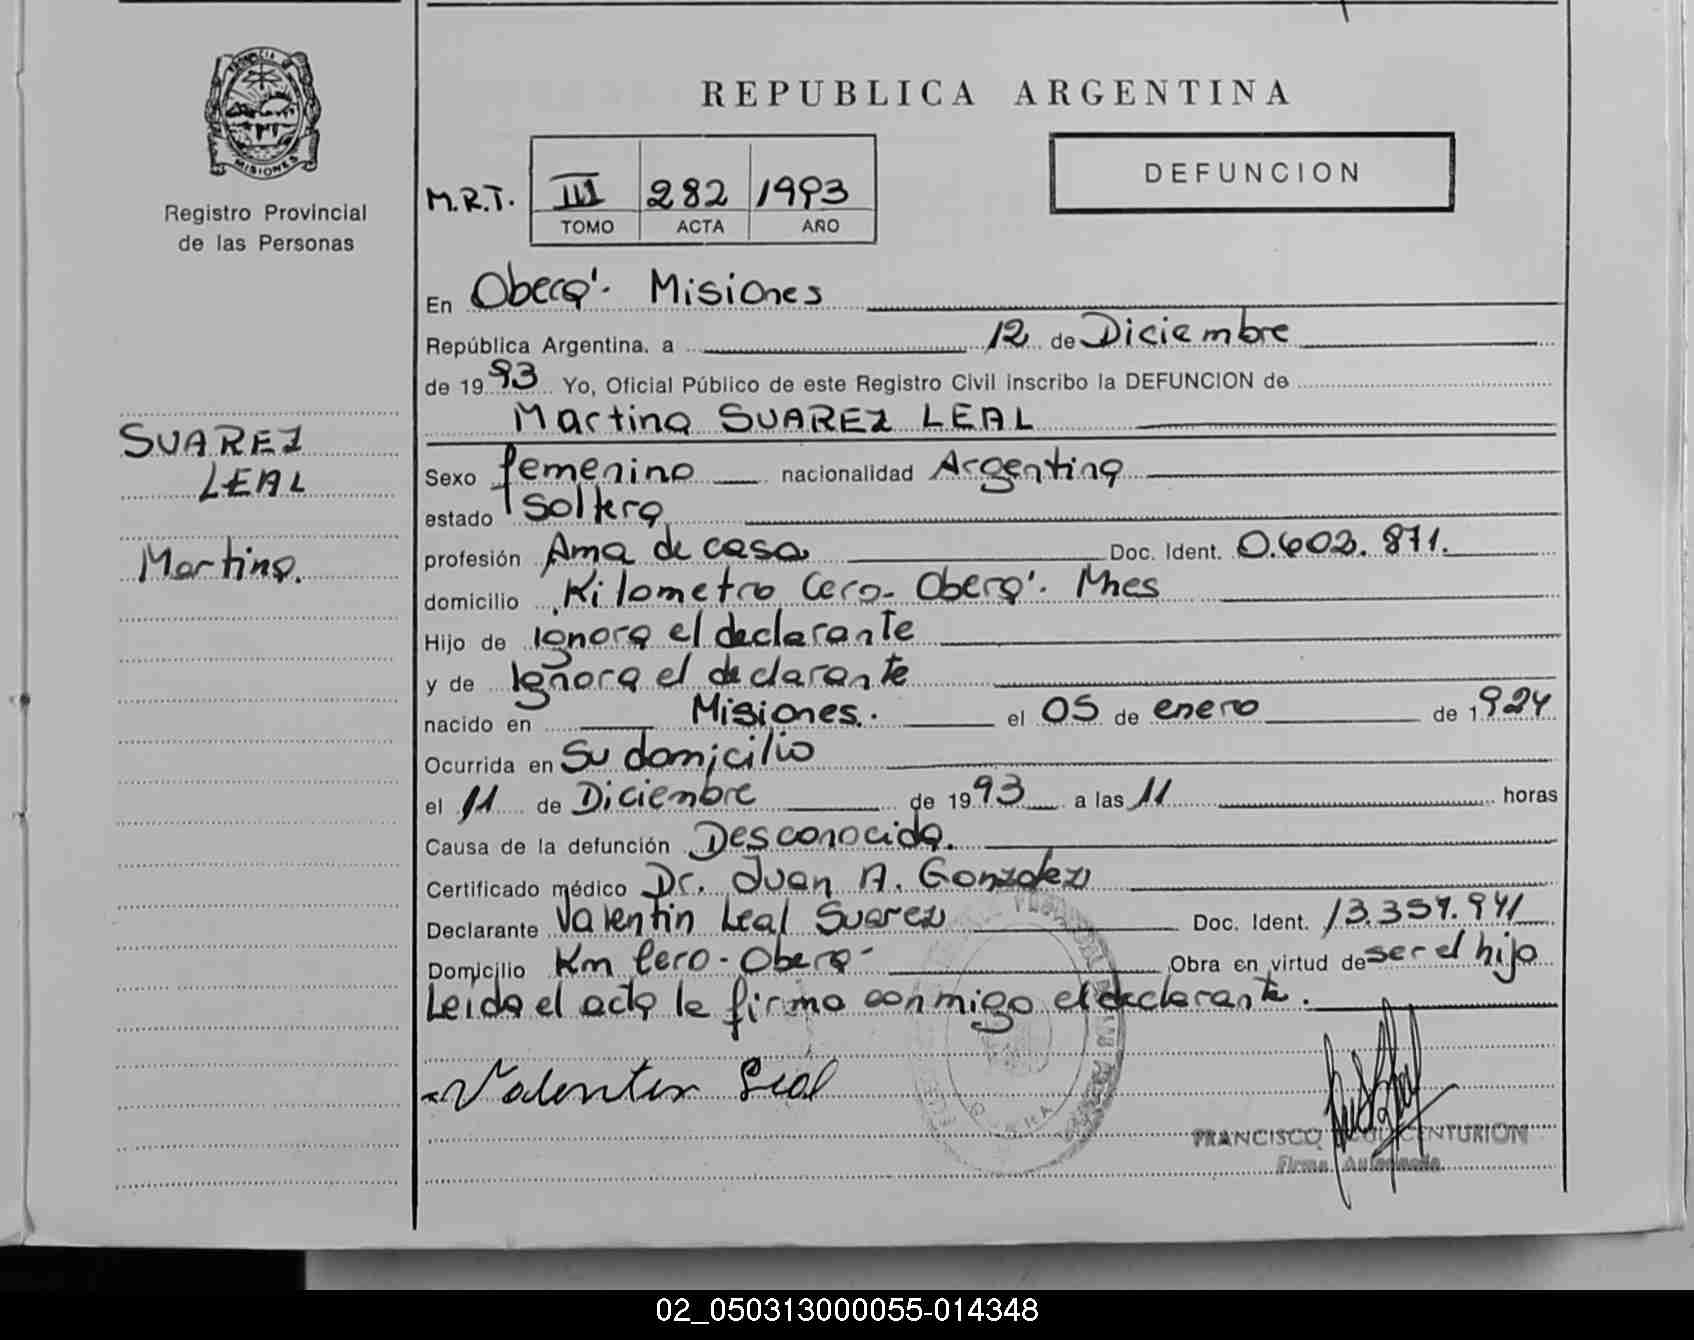 PROVINCIA DE
MISIONES
Registro Provincial
de las Personas
SUAREZ
LEAL
Martina.
REPUBLICA ARGENTINA
DEFUNCION
M.R.T. III 282 1993
TOMO ACTA AÑO
En Oberá. Misiones
República Argentina, a 12 de Diciembre
de 1993 Yo, Oficial Público de este Registro Civil inscribo la DEFUNCION de
Martina SUAREZ LEAL
Sexo femenino nacionalidad Argentina
estado Soltera
profesión Ama de casa Doc. Ident. 0.603.871.
domicilio Kilometro Cero - Oberá. Mnes
Hijo de ignora el declarante
y de Ignora el declarante
nacido en Misiones. el 05 de enero de 1924
Ocurrida en Su domicilio
el 11 de Diciembre de 1993 a las 11 horas
Causa de la defunción Desconocida.
Certificado médico Dr. Juan A. Gonzalez
Declarante Valentin Leal Suarez Doc. Ident. 13.359.941
Domicilio Km Cero - Oberá - Obra en virtud de ser el hijo
Leida el acta la firma conmigo el declarante.
Valentin Leal
FRANCISCO CENTURION
Firma Autorizada
02_050313000055-014348